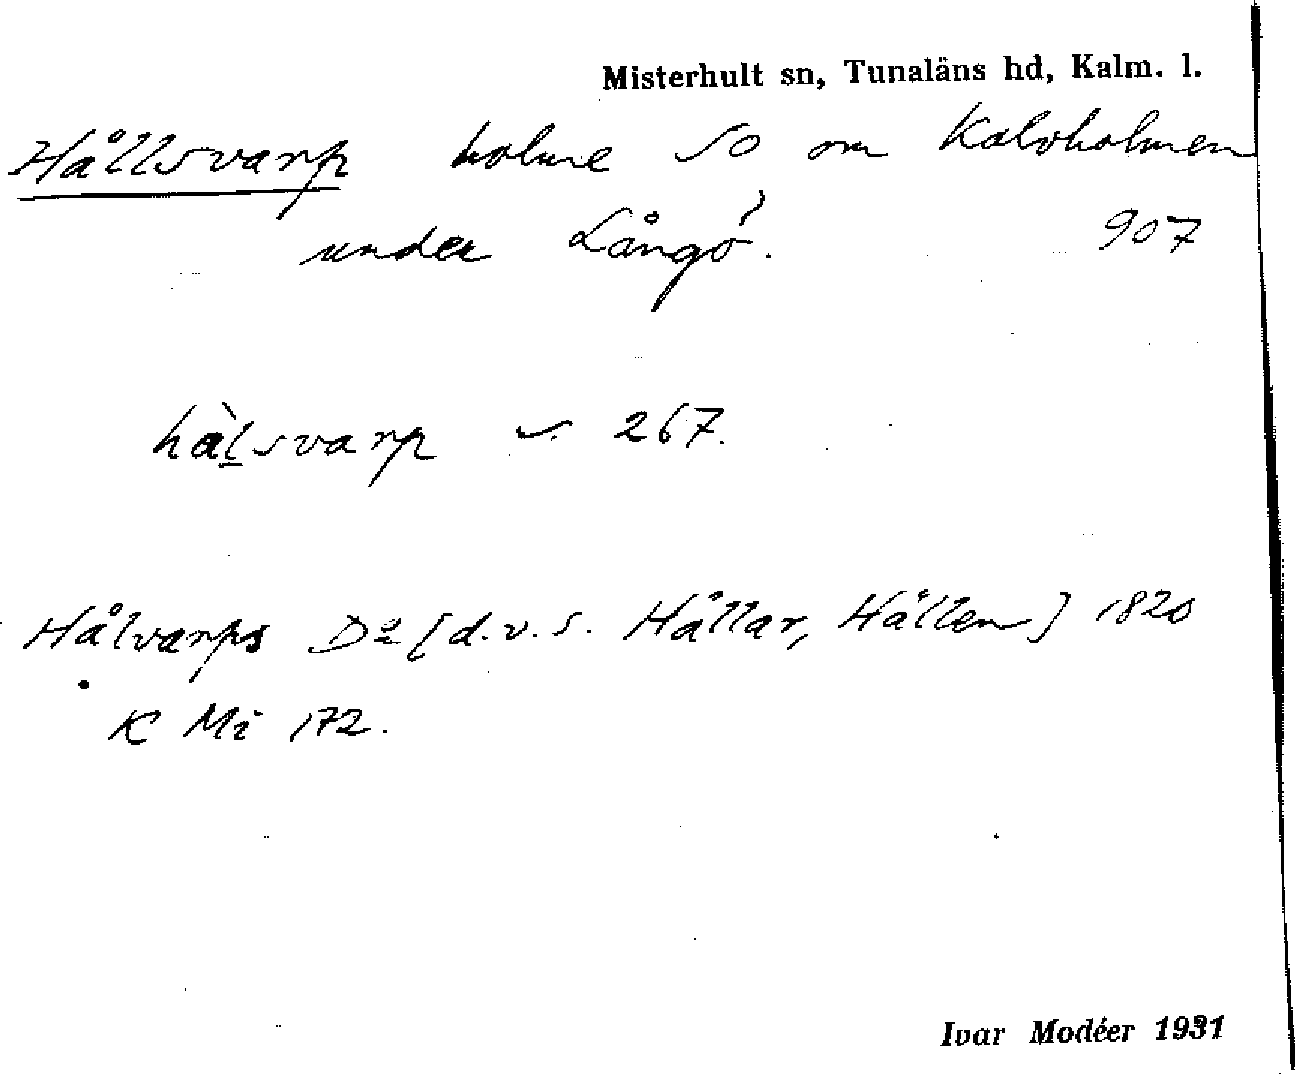 Misterhult sn, Tunaläns hd, Kalm. l.
Hållsvarp holme SO om Kalvholmen
under Långö. 907
hàlsvarp 267.
Hålvarps Do [d.v.s. Hållar, Hållen] 1820
K Mi 172.
Ivar Modéer 1931